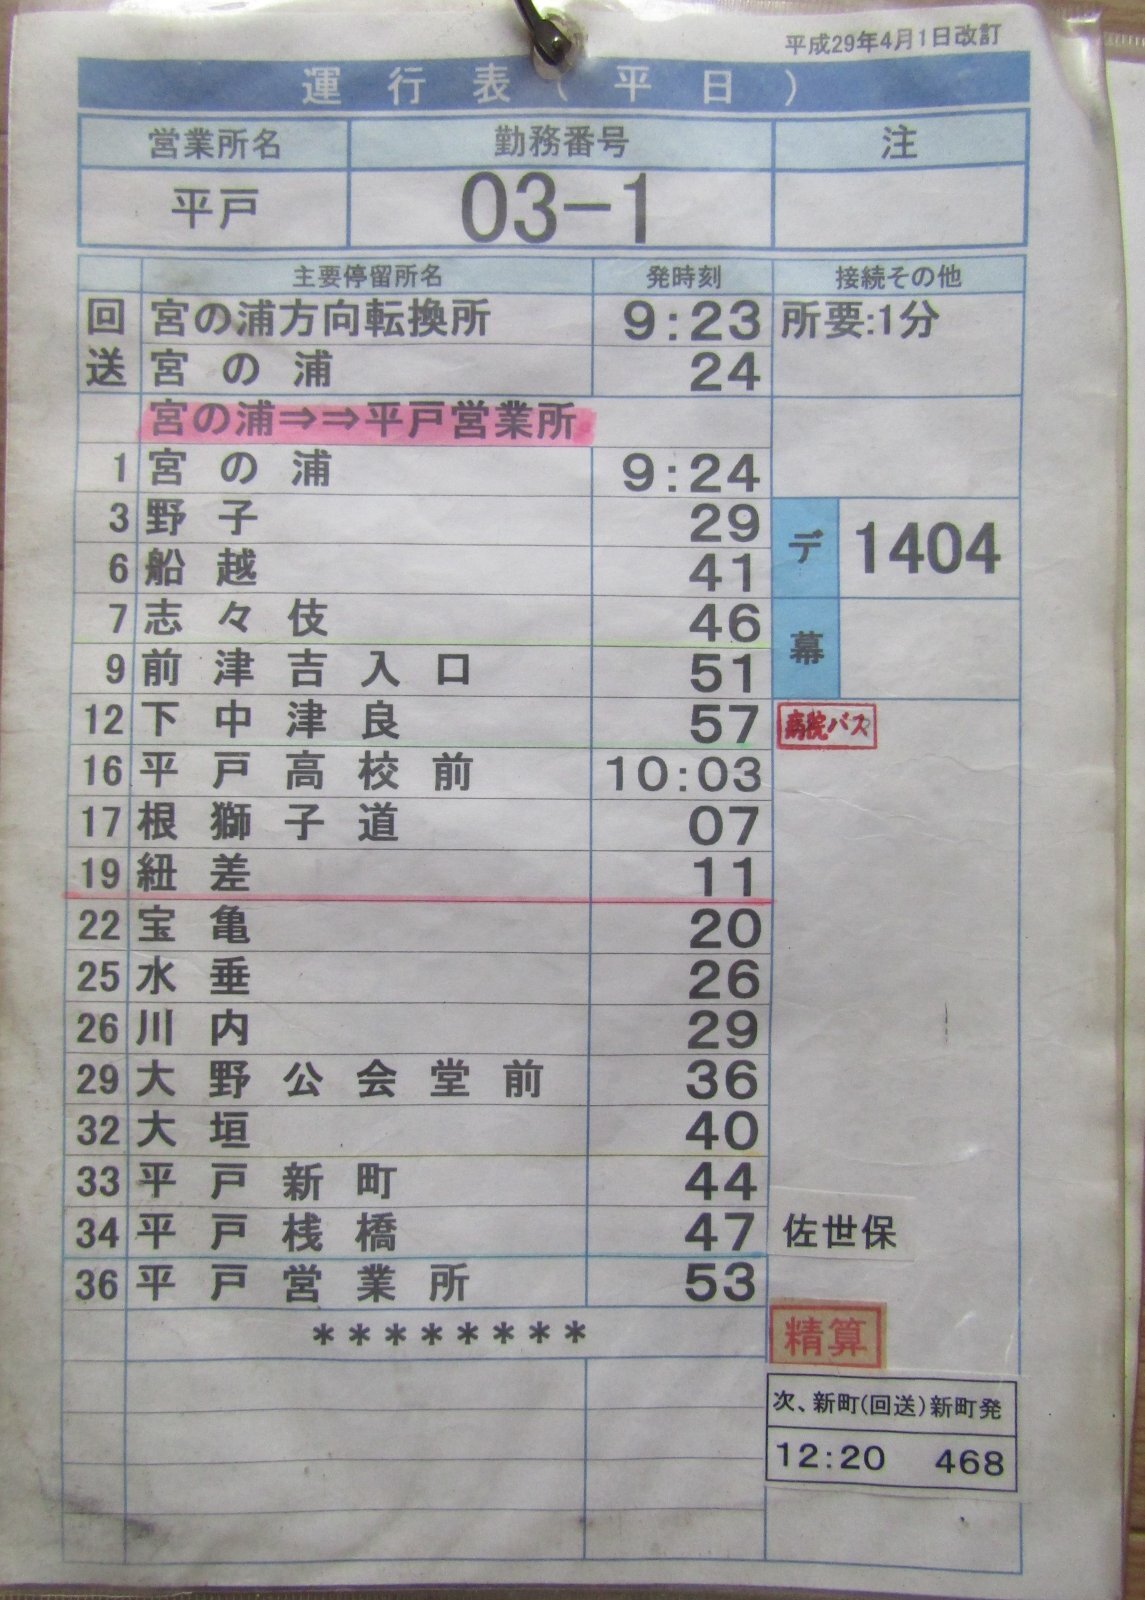 平成29年4月1日改訂
運行表(平日)
営業所名 勤務番号 注
平戸 03-1
主要停留所名 発時刻 接続その他
回送 宮の浦方向転換所 9:23 所要:1分
宮の浦 24
宮の浦⇒⇒平戸営業所
1 宮の浦 9:24
3 野子 29 デ 1404
6 船越 41
7 志々伎 46 幕
9 前津吉入口 51
12 下中津良 57 病院バス
16 平戸高校前 10:03
17 根獅子道 07
19 紐差 11
22 宝亀 20
25 水垂 26
26 川内 29
29 大野公会堂前 36
32 大垣 40
33 平戸新町 44
34 平戸桟橋 47 佐世保
36 平戸営業所 53
******** 精算
次、新町(回送)新町発
12:20 468